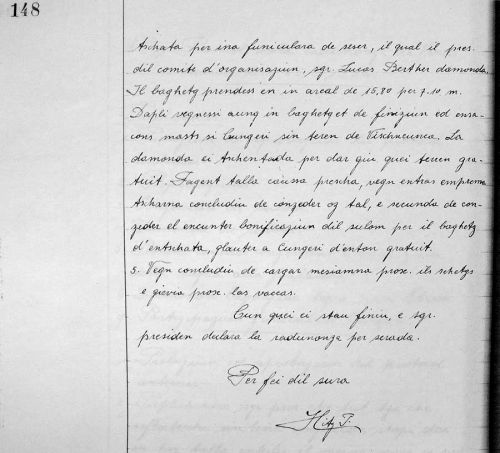 148
tschata per ina funiculara de seser, il qual il pres.
dil comite d'organisaziun, sgr. Lucas Berther damonda.
Il baghetg prendess en in areal de 15,80 per 7.10 m.
Dapli vegnessi aung in baghetget de finiziun ed enza-
cons masts si Cungeri sin teren de Vischneunca. La
damonda ei per dar giu quei teren gra-
tuit. Fagent talla caussa prescha, vegn entras emprema
concludiu de conzeder og tal, e secunda de con-
zeder el encunter bonificaziun dil sulom per il baghetg
d'entschata, glauter a Cungeri d'enton gratuit.
5. Vegn concludiu de cargar mesiamna prox. ils schetgs
e gievia prox. las vaccas.
Cun quei ei stau finiu, e sgr.
presiden delara la radunonza per serada.
Per fei dil sura
Hitz T.